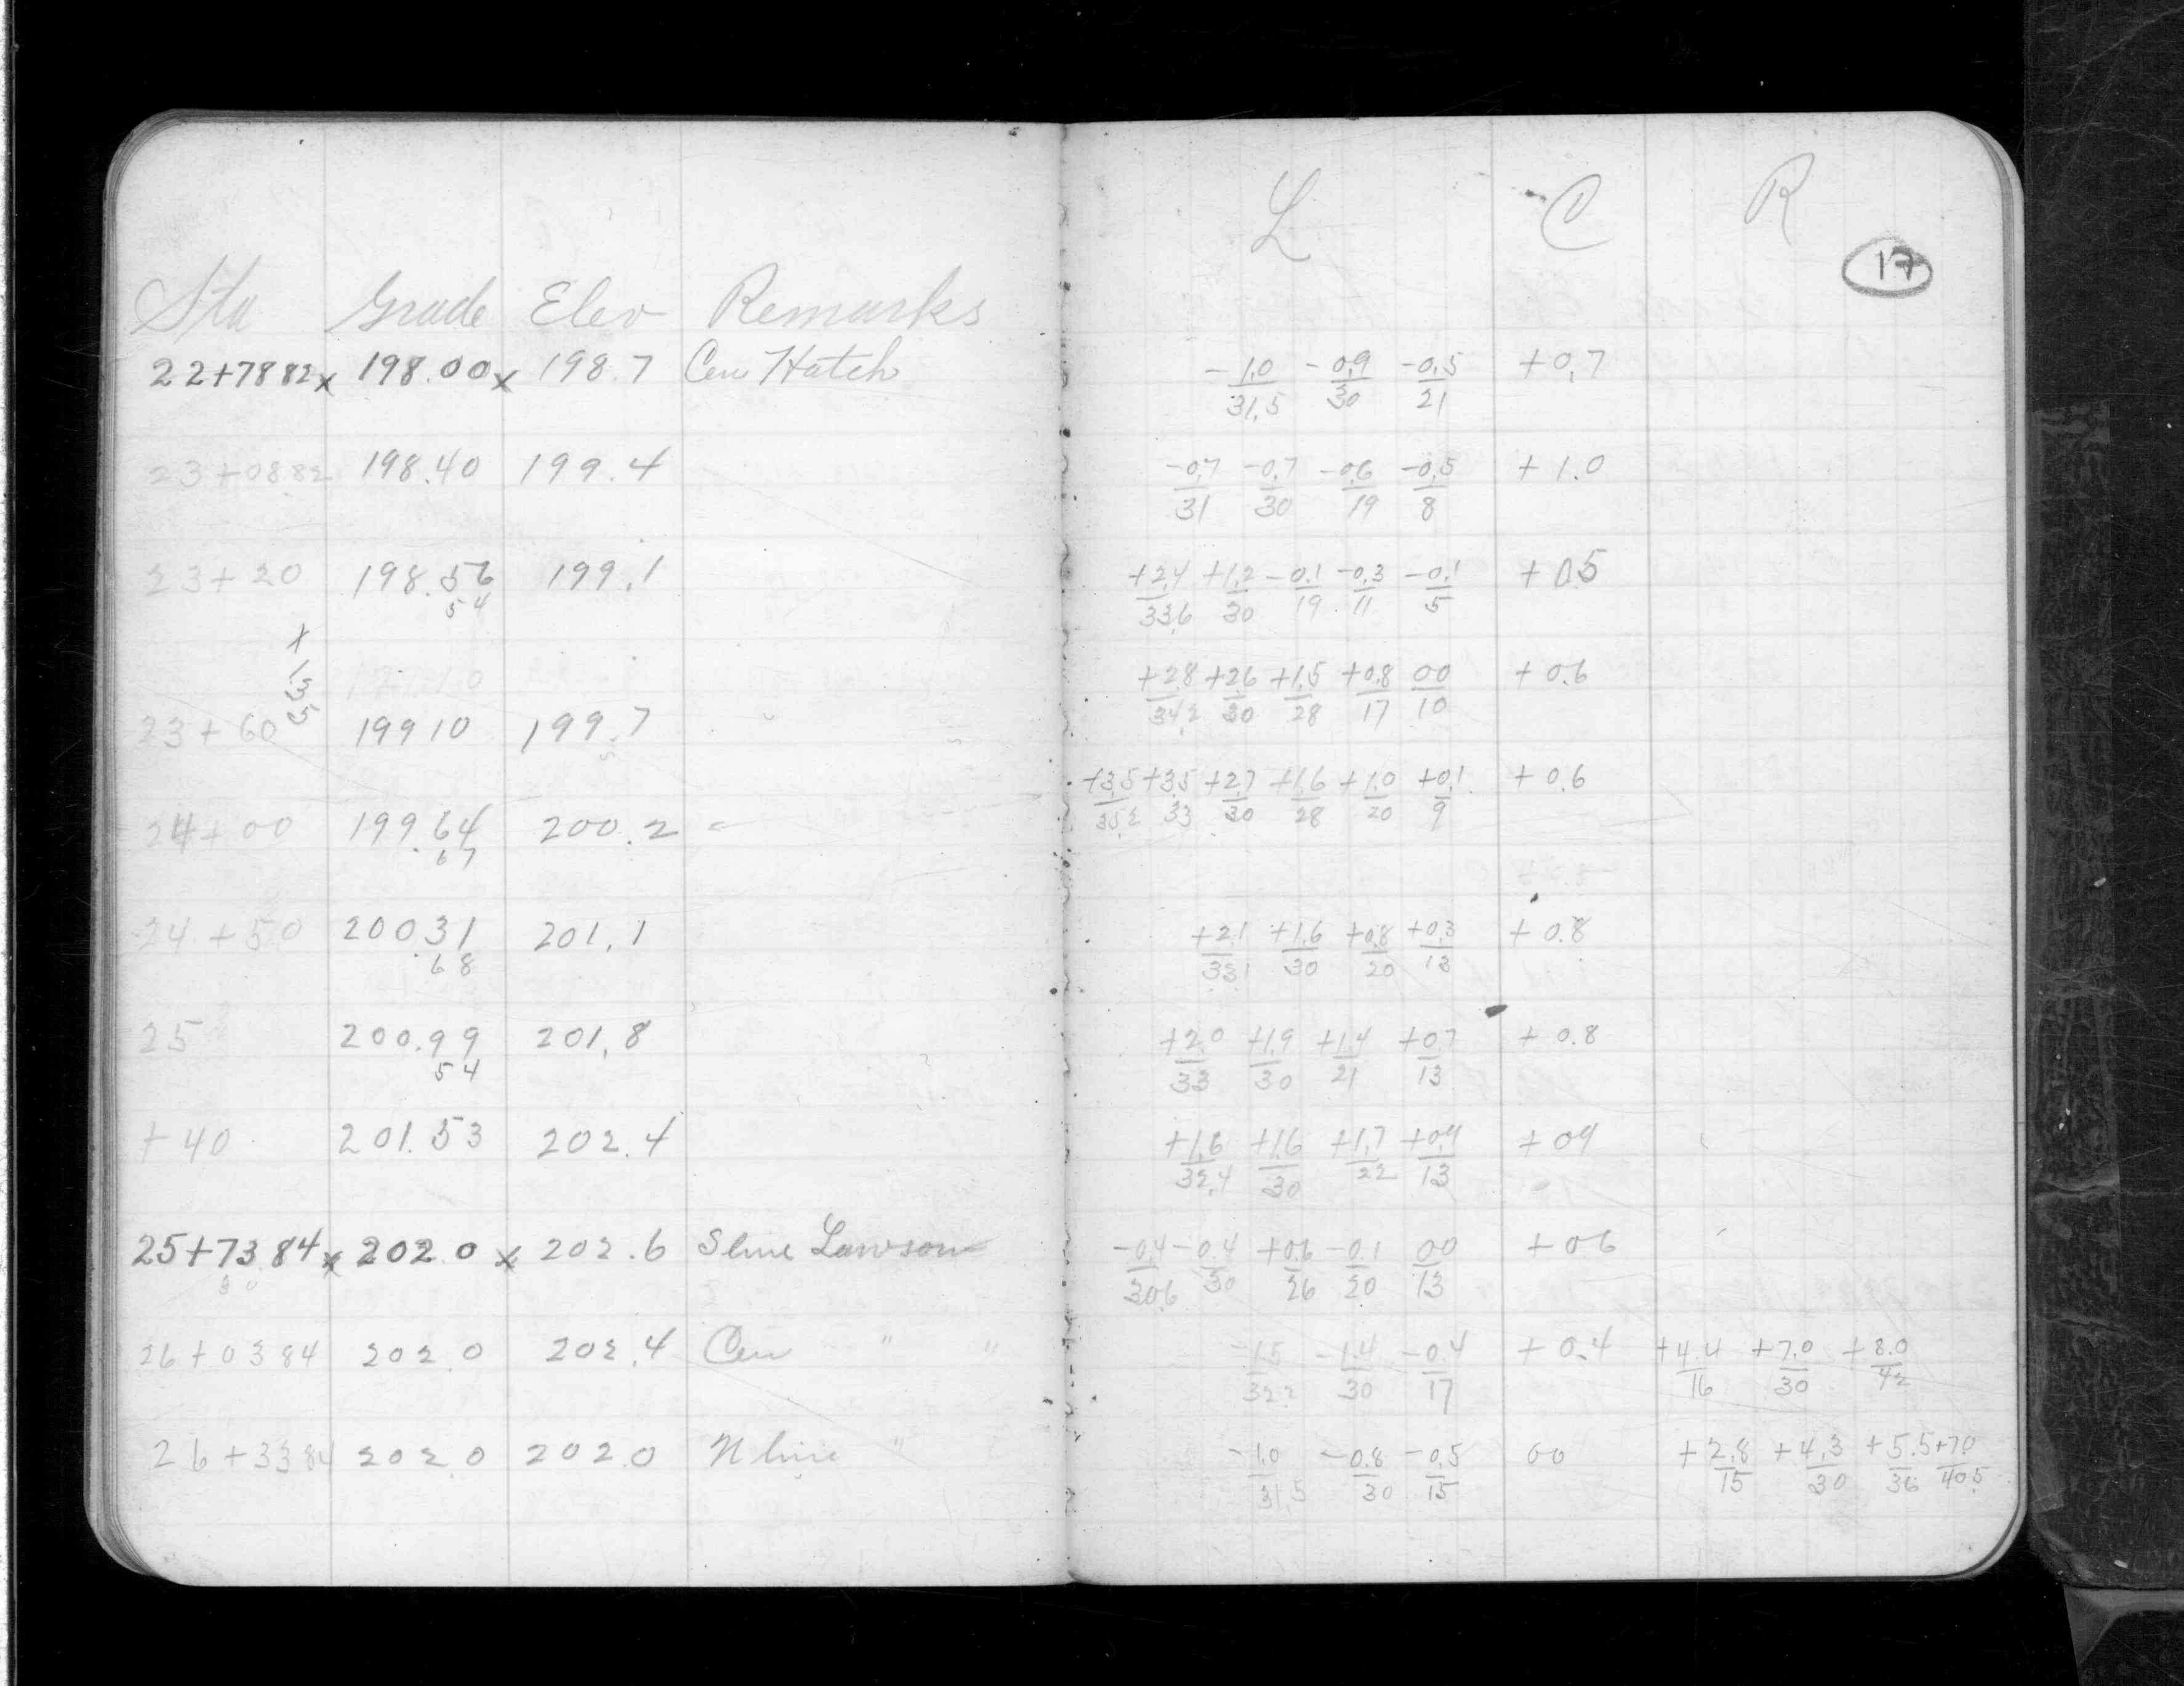 Sta Grade Elev Remarks
22+78 82 x 198.00 x 198.7 Cen Hatch
23+08 82 198.40 199.4
23+20 198.56 199.1
54
x
1.35
23+60 199 10 199.7
24+00 199.64 200.2
67
24+50 200 31 201.1
68
25 200.99 201.8
54
+40 201.53 202.4
25+73 84 x 202.0 x 202.6 S line Lawson
30
26+03 84 202.0 202.4 Cen " "
26+33 84 202.0 202.0 N line "
L C R
17
-1.0/31.5 -0.9/30 -0.5/21 +0.7
-0.7/31 -0.7/30 -0.6/19 -0.5/8 +1.0
+2.4/33.6 +1.2/30 -0.1/19 -0.3/11 -0.1/5 +0.5
+2.8/34.2 +2.6/30 +1.5/28 +0.8/17 00/10 +0.6
+3.5/35.2 +3.5/33 +2.7/30 +1.6/28 +1.0/20 +0.1/9 +0.6
+2.1/33.1 +1.6/30 +0.8/20 +0.3/13 +0.8
+2.0/33 +1.9/30 +1.4/21 +0.7/13 +0.8
+1.6/32.4 +1.6/30 +1.7/22 +0.9/13 +09
-0.4/30.6 -0.4/30 +0.6/26 -0.1/20 00/13 +06
-1.5/32.2 -1.4/30 -0.4/17 +0.4 +4.4/16 +7.0/30 +8.0/42
-1.0/31.5 -0.8/30 -0.5/15 00 +2.8/15 +4.3/30 +5.5/36 +7.0/40.5